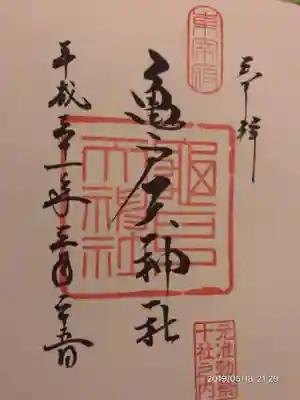 東宰府
奉拝
亀戸天神社
龜戸
天神社
平成三十一年三月二十五日
元准勅祭
十社之内
2019/05/18 21:29